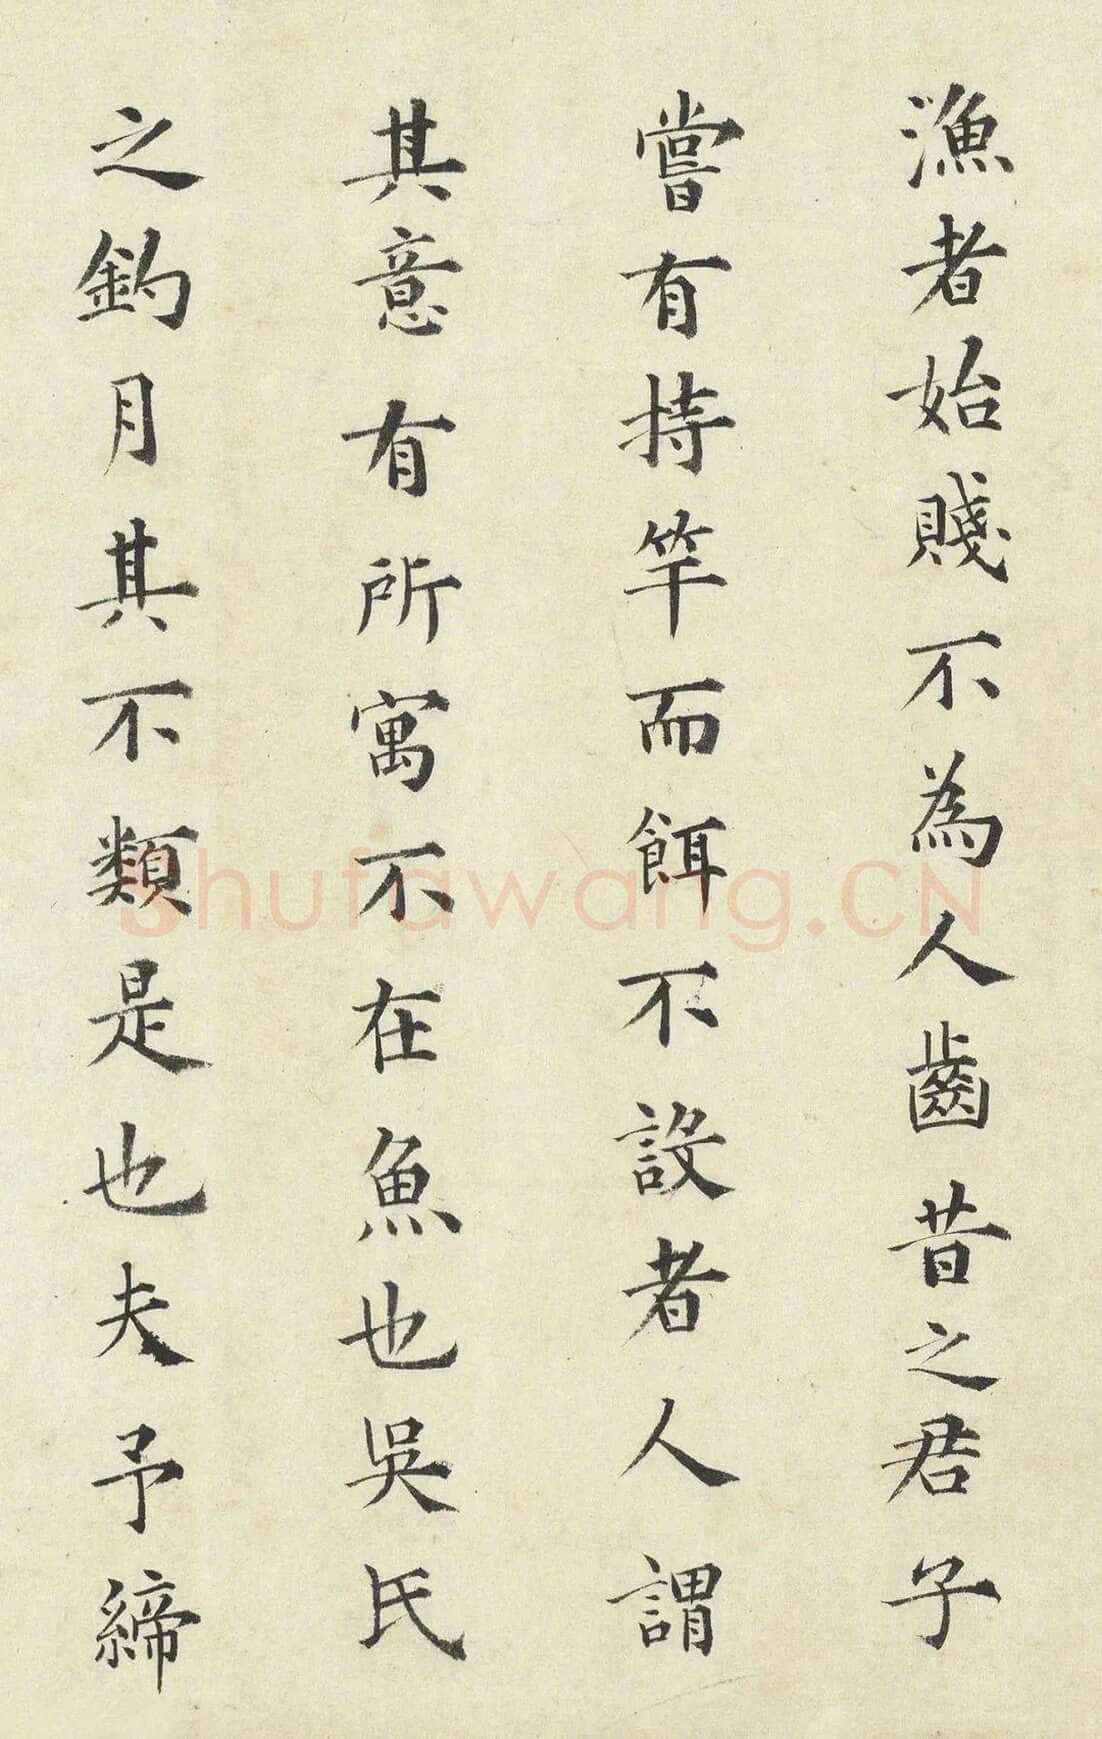 漁者始賤不為人齒昔之君子
嘗有持竿而餌不設者人謂
其意有所寓不在魚也吳氏
之釣月其不類是也夫予締
shufawang.CN